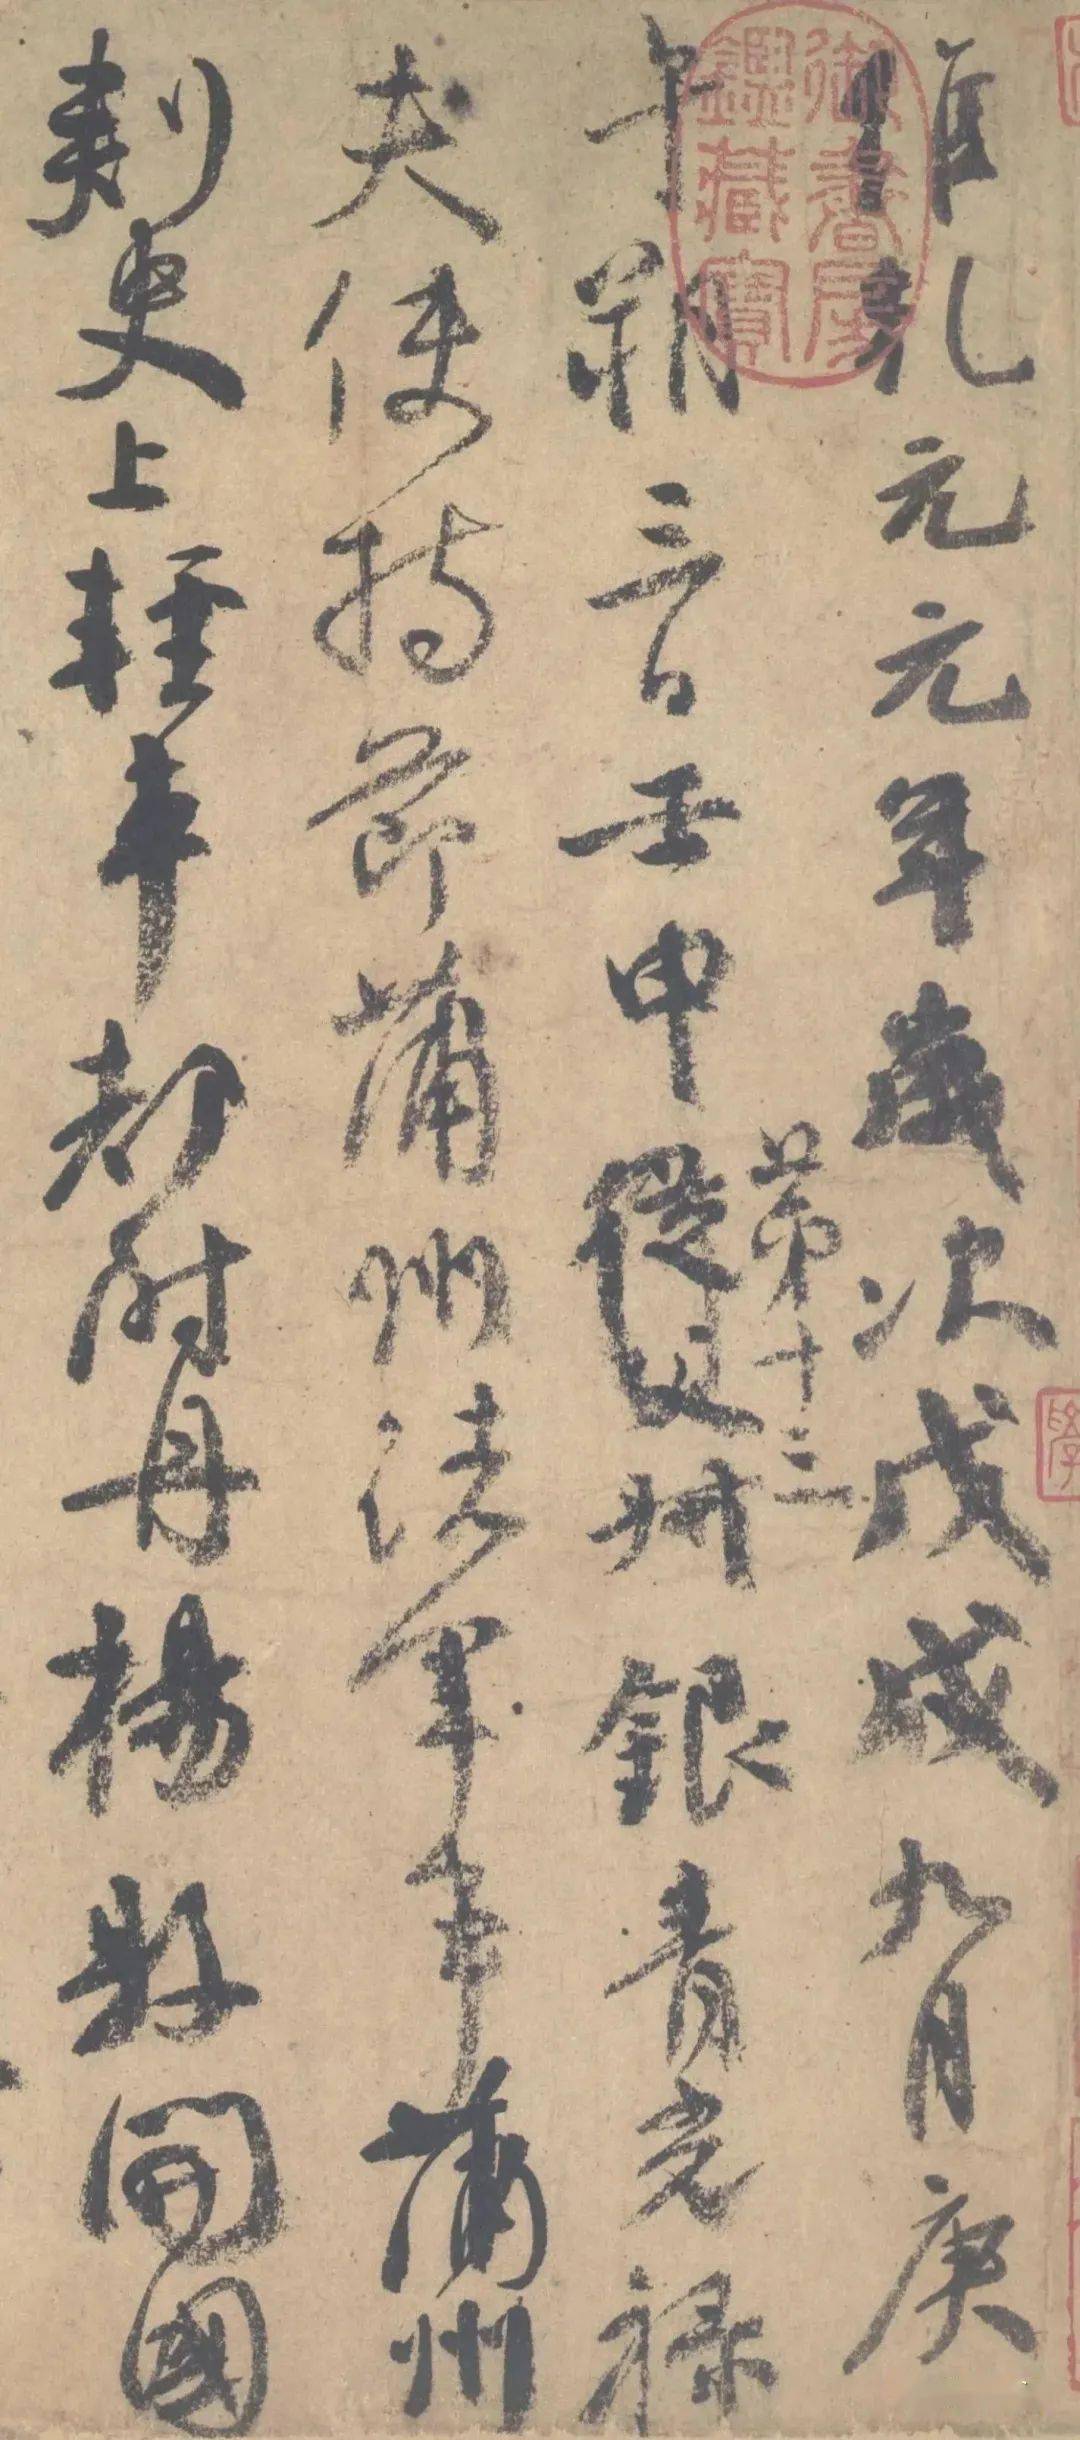 維乾元元年歲次戊戌九月庚
午朔三日壬申第十三從父𠦑銀青光禄
夫使持節蒲州諸軍事蒲州
刺史上輕車都尉丹楊縣開國
御書房鑑藏寶